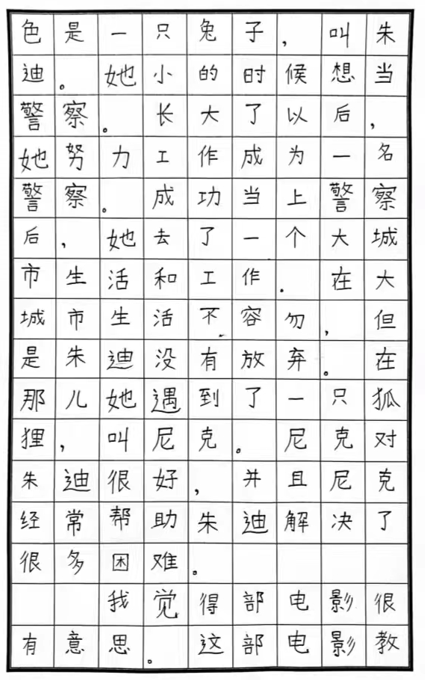 色是一只兔子,叫朱
迪。她小的时候想当
警察。长大了以后,
她努力工作成为一名
警察。成功当上警察
后,她去了一个大城
市生活和工作.在大
城市生活不容勿,但
是朱迪没有放弃。在
那儿她遇到了一只狐
狸,叫尼克。尼克对
朱迪很好,并且尼克
经常帮助朱迪解决了
很多困难。
我觉得部电影很
有意思。这部电影教